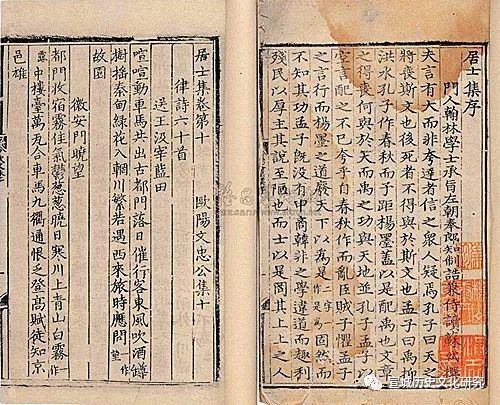 居士集序
門人翰林學士承旨左朝奉郎知制誥兼侍讀蘇軾撰
夫言有大而非夸達者信之衆人疑焉孔子曰天之
將喪斯文也後死者不得與於斯文也孟子曰禹抑
洪水孔子作春秋而予距楊墨蓋以是配禹也文章
之得喪何與於天而禹之功與天地並孔子孟子以
空言配之不已夸乎自春秋作而亂臣賊子懼孟子
之言行而楊墨之道廢天下以為是二字一作是為固然而
不知其功孟子既沒有申商韓非之學違道而趨利
殘民以厚主其說至陋也而士以是罔其上上之人
居士集卷第十 歐陽文忠公集十
律詩六十首
送王汲宰藍田
喧喧動車馬共出古都門落日催行客東風吹酒罇
樹搖秦甸綠花入輞川繁若遇西來旅時應問一作望
故園
徽安門曉望
都門收宿霧佳氣鬱葱葱曉日寒川上青山白霧一作
露中樓臺萬瓦合車馬九衢通恨乏登高賦徒知京
邑雄
宣城历史文化研究